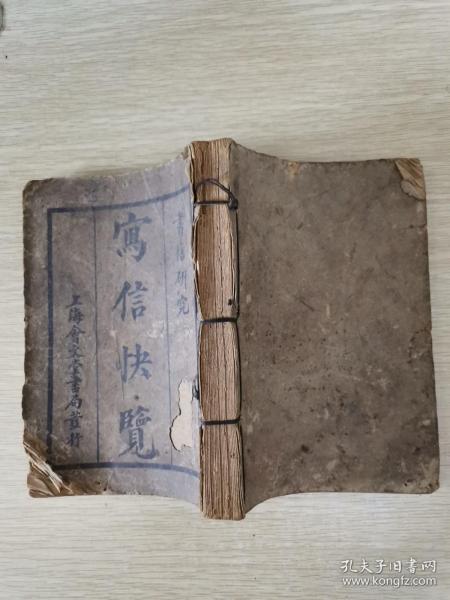 書信研究
寫信快覽
上海會文堂書局發行
孔夫子旧书网
www.kongfz.com